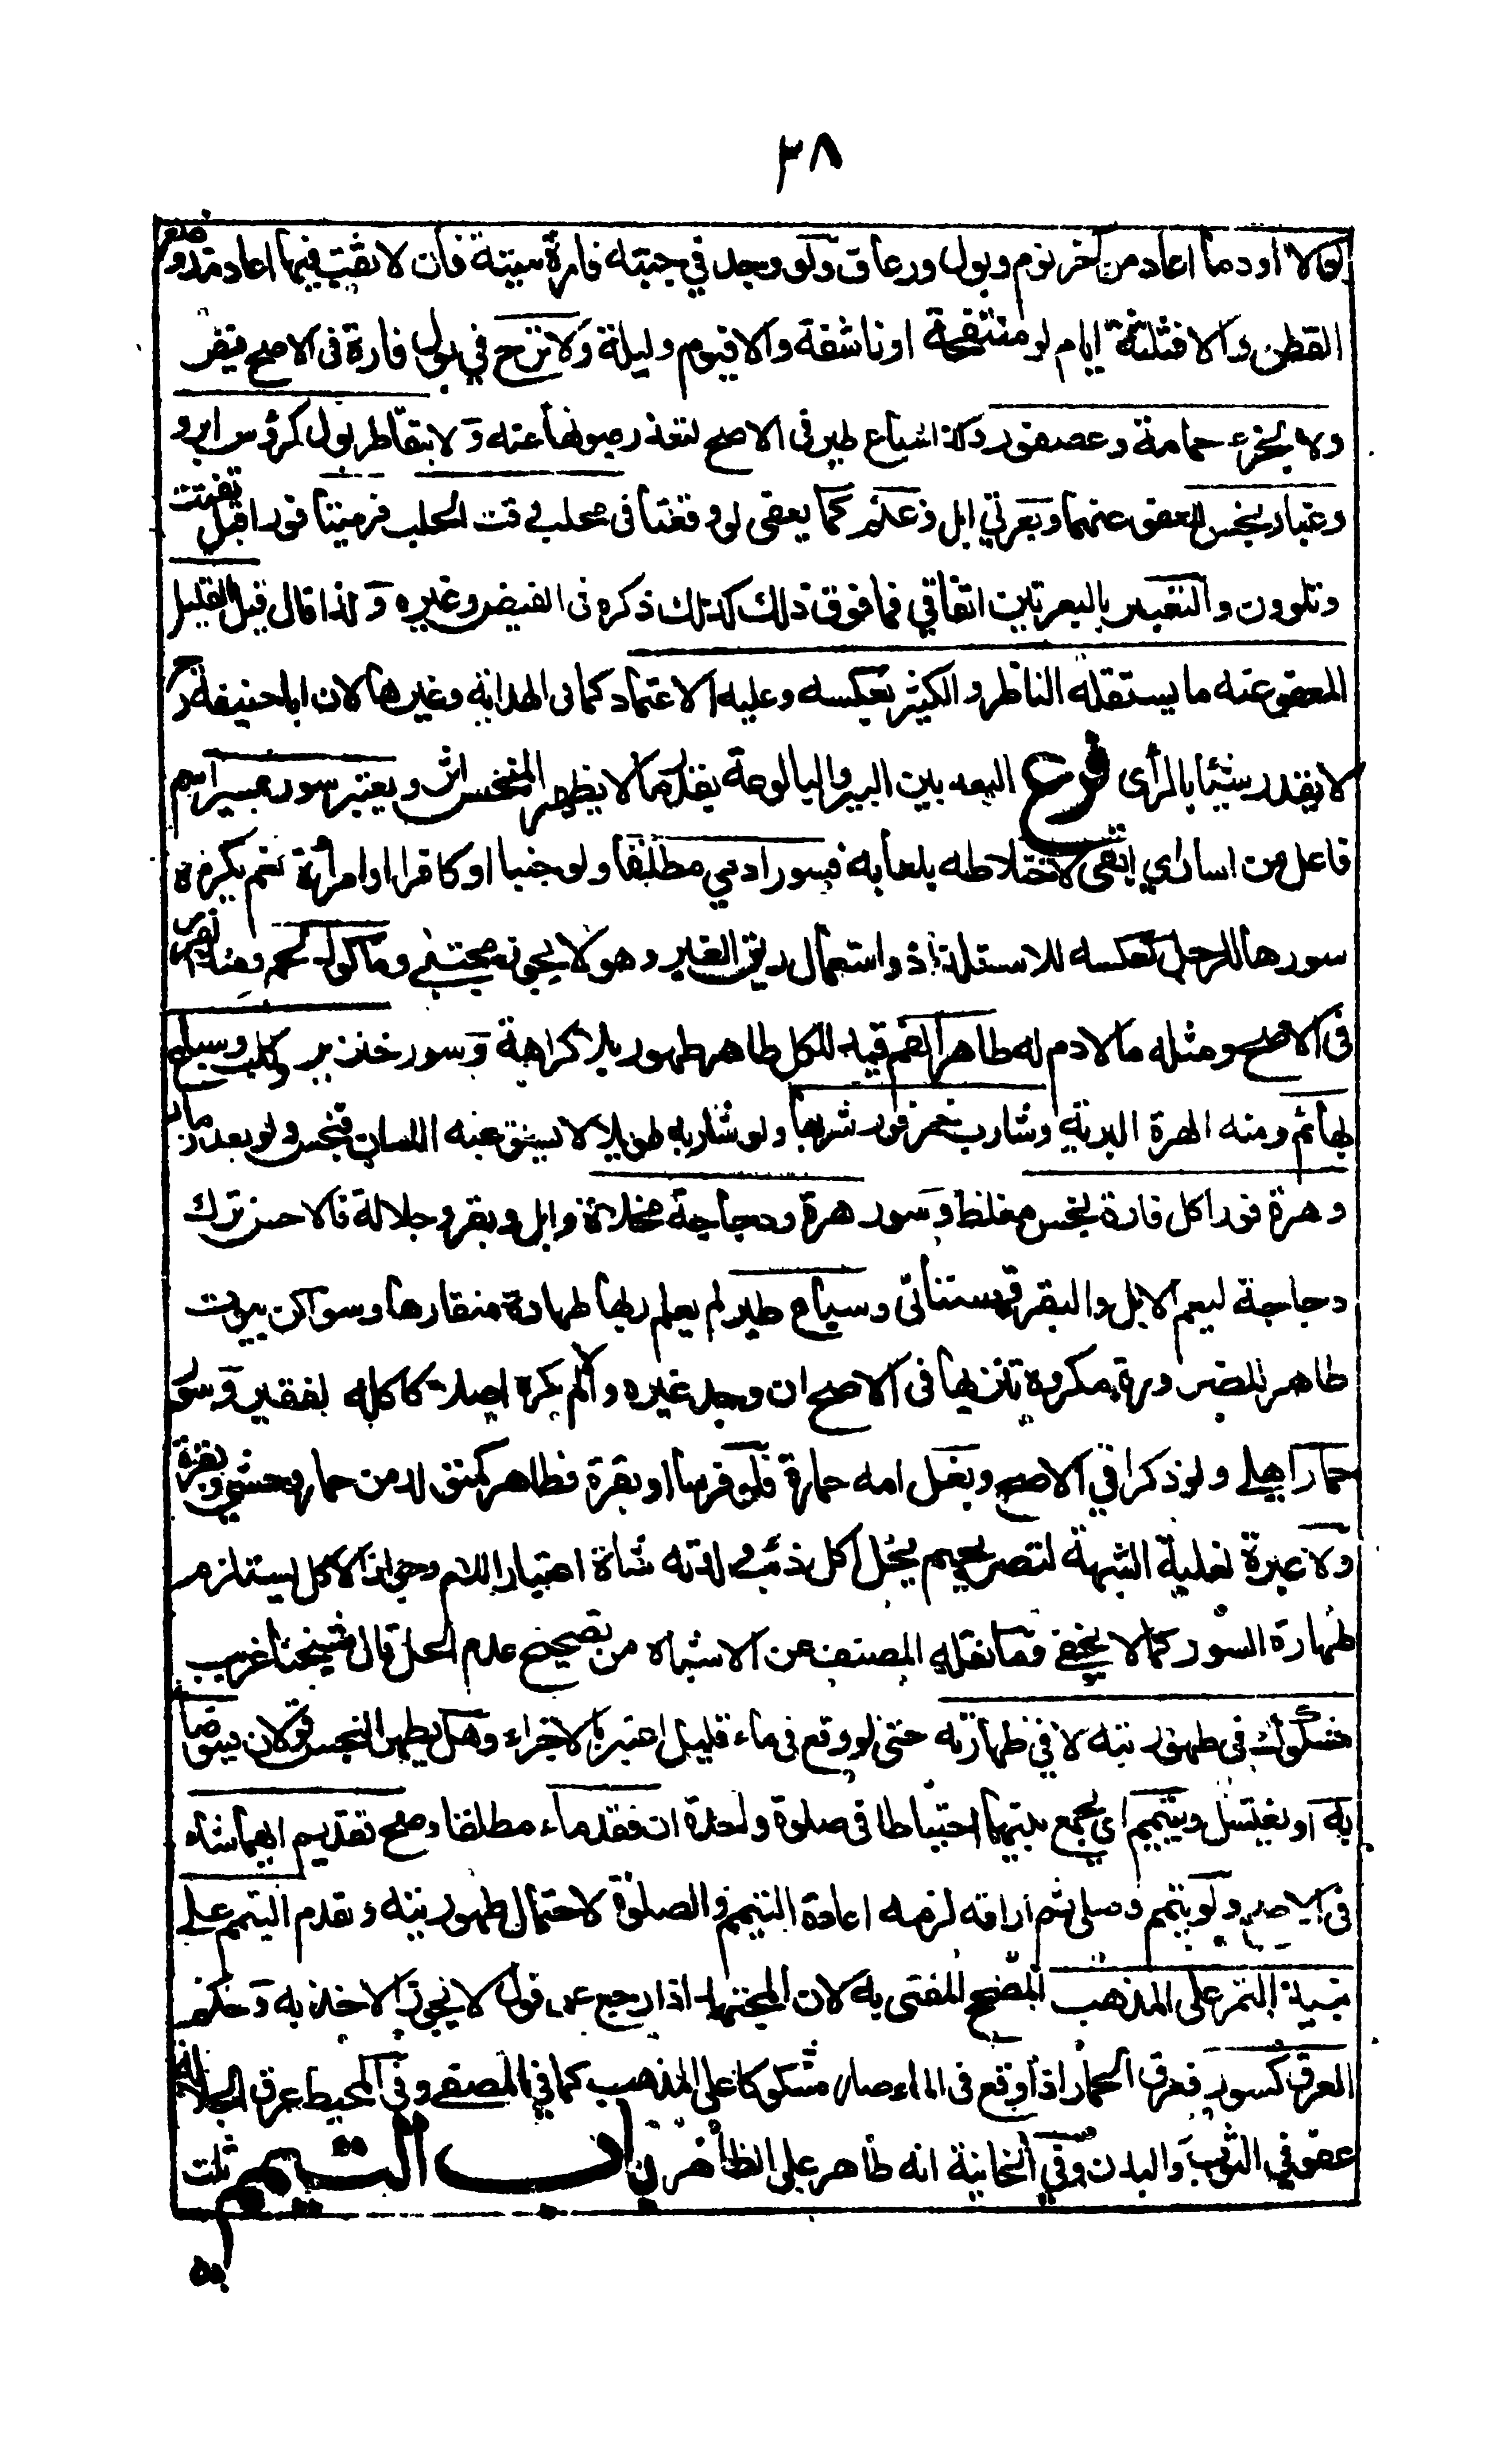 ٣٨
بولا او دما اعاد من آخر نوم وبول ورعاف ولو وجد في جبته فارة ميتة فان لا ثقب فيها اعاد مذ وضع
القطن والا فثلثة ايام لو منتفخة او ناشفة والا فيوم وليلة ولا نزح في بول فارة فى الاصح فيض
ولا بخرء حمامة وعصفور وكذا سباع طير فى الاصح لتعذر صونها عنه ولا بتقاطر بول كرؤس ابر و
وغبار نجس للعفو عنهما وبعرتي ابل وغنم كما يعفى لو وقعتا فى محلب وقت الحلب فرميتا فورا قبل تفتت
وتلون والتعبير بالبعرتين اتفاقي فما فوق ذلك كذلك ذكره فى الفيض وغيره ولذا قال قيل القليل
المعفو عنه ما يستقله الناظر والكثير بعكسه وعليه الاعتماد كما فى الهداية وغيرها لان ابا حنيفة رح
لا يقدر شيئا بالرأى فرع البعد بين البير والبالوعة بقدر ما لا يظهر للنجس اثر ويعتبر سور بمسير اسم
فاعل من اسار اي ابقى لاختلاطه بلعابه فسور ادمي مطلقا ولو جنبا او كافرا او امرأة نعم يكره
سورها للرجل كعكسه للاستلذاذ واستعمال ريق الغير وهو لا يجوز مجتبى وماكول لحم ومنه الفرس
فى الاصح ومثله ما لا دم له طاهر الفم قيد للكل طاهر طهور بلا كراهة وسور خنزير وكلب وسباع
بهائم ومنه الهرة البرية وشارب خمر فور شربها ولو شاربه طويلا لا يستوعبه اللسان فنجس ولو بعد زمان
وهرة فور اكل فارة نجس مغلظ وسور هرة ودجاجة مخلاة وابل وبقر وجلالة فالاحسن ترك
دجاجة ليعم الابل والبقر قهستاني وسباع طير لم يعلم ربها طهارة منقارها وسواكن بيوت
طاهر للضرورة مكروه تنزيها فى الاصح ان وجد غيره والا لم يكره اصلا كاكله لفقير وسور
حمار اهلي ولو ذكرا في الاصح وبغل امه حمارة فلو فرسا او بقرة فطاهر كمتولد من حمار وحشي وبقرة
ولا عبرة لغلبة الشبهة لتصريحهم بحل اكل ذئب ولدته شاة اعتبارا للام وجواز الاكل يستلزم
طهارة السور كما لا يخفى فما نقله المصنف عن الاشباه من تصحيح عدم الحل قال شيخنا غريب
مشكوك فى طهوريته لا في طهارته حتى لو وقع فى ماء قليل اعتبر بالاجزاء وهل يطهر النجس قولان فيتوضأ
به او يغتسل ويتيمم اي يجمع بينهما احتياطا فى صلوة واحدة ان فقد ماء مطلقا وصح تقديم ايهما شاء
فى الاصح ولو تيمم وصلى ثم اراقه لزمه اعادة التيمم والصلوة لاحتمال طهوريته وتقدم التيمم على
نبيذ التمر على المذهب المصحح المفتى به لان المجتهد اذا رجع عن قول لا يجوز الاخذ به وحكم
العرق كسور فعرق الحمار اذا وقع فى الماء صار مشكوكا على المذهب كما فى المستصفى وفى المحيط عرق الجلالة
عفو في الثوب والبدن وفي الخانية انه طاهر على الظاهر باب التيمم ثلث
به